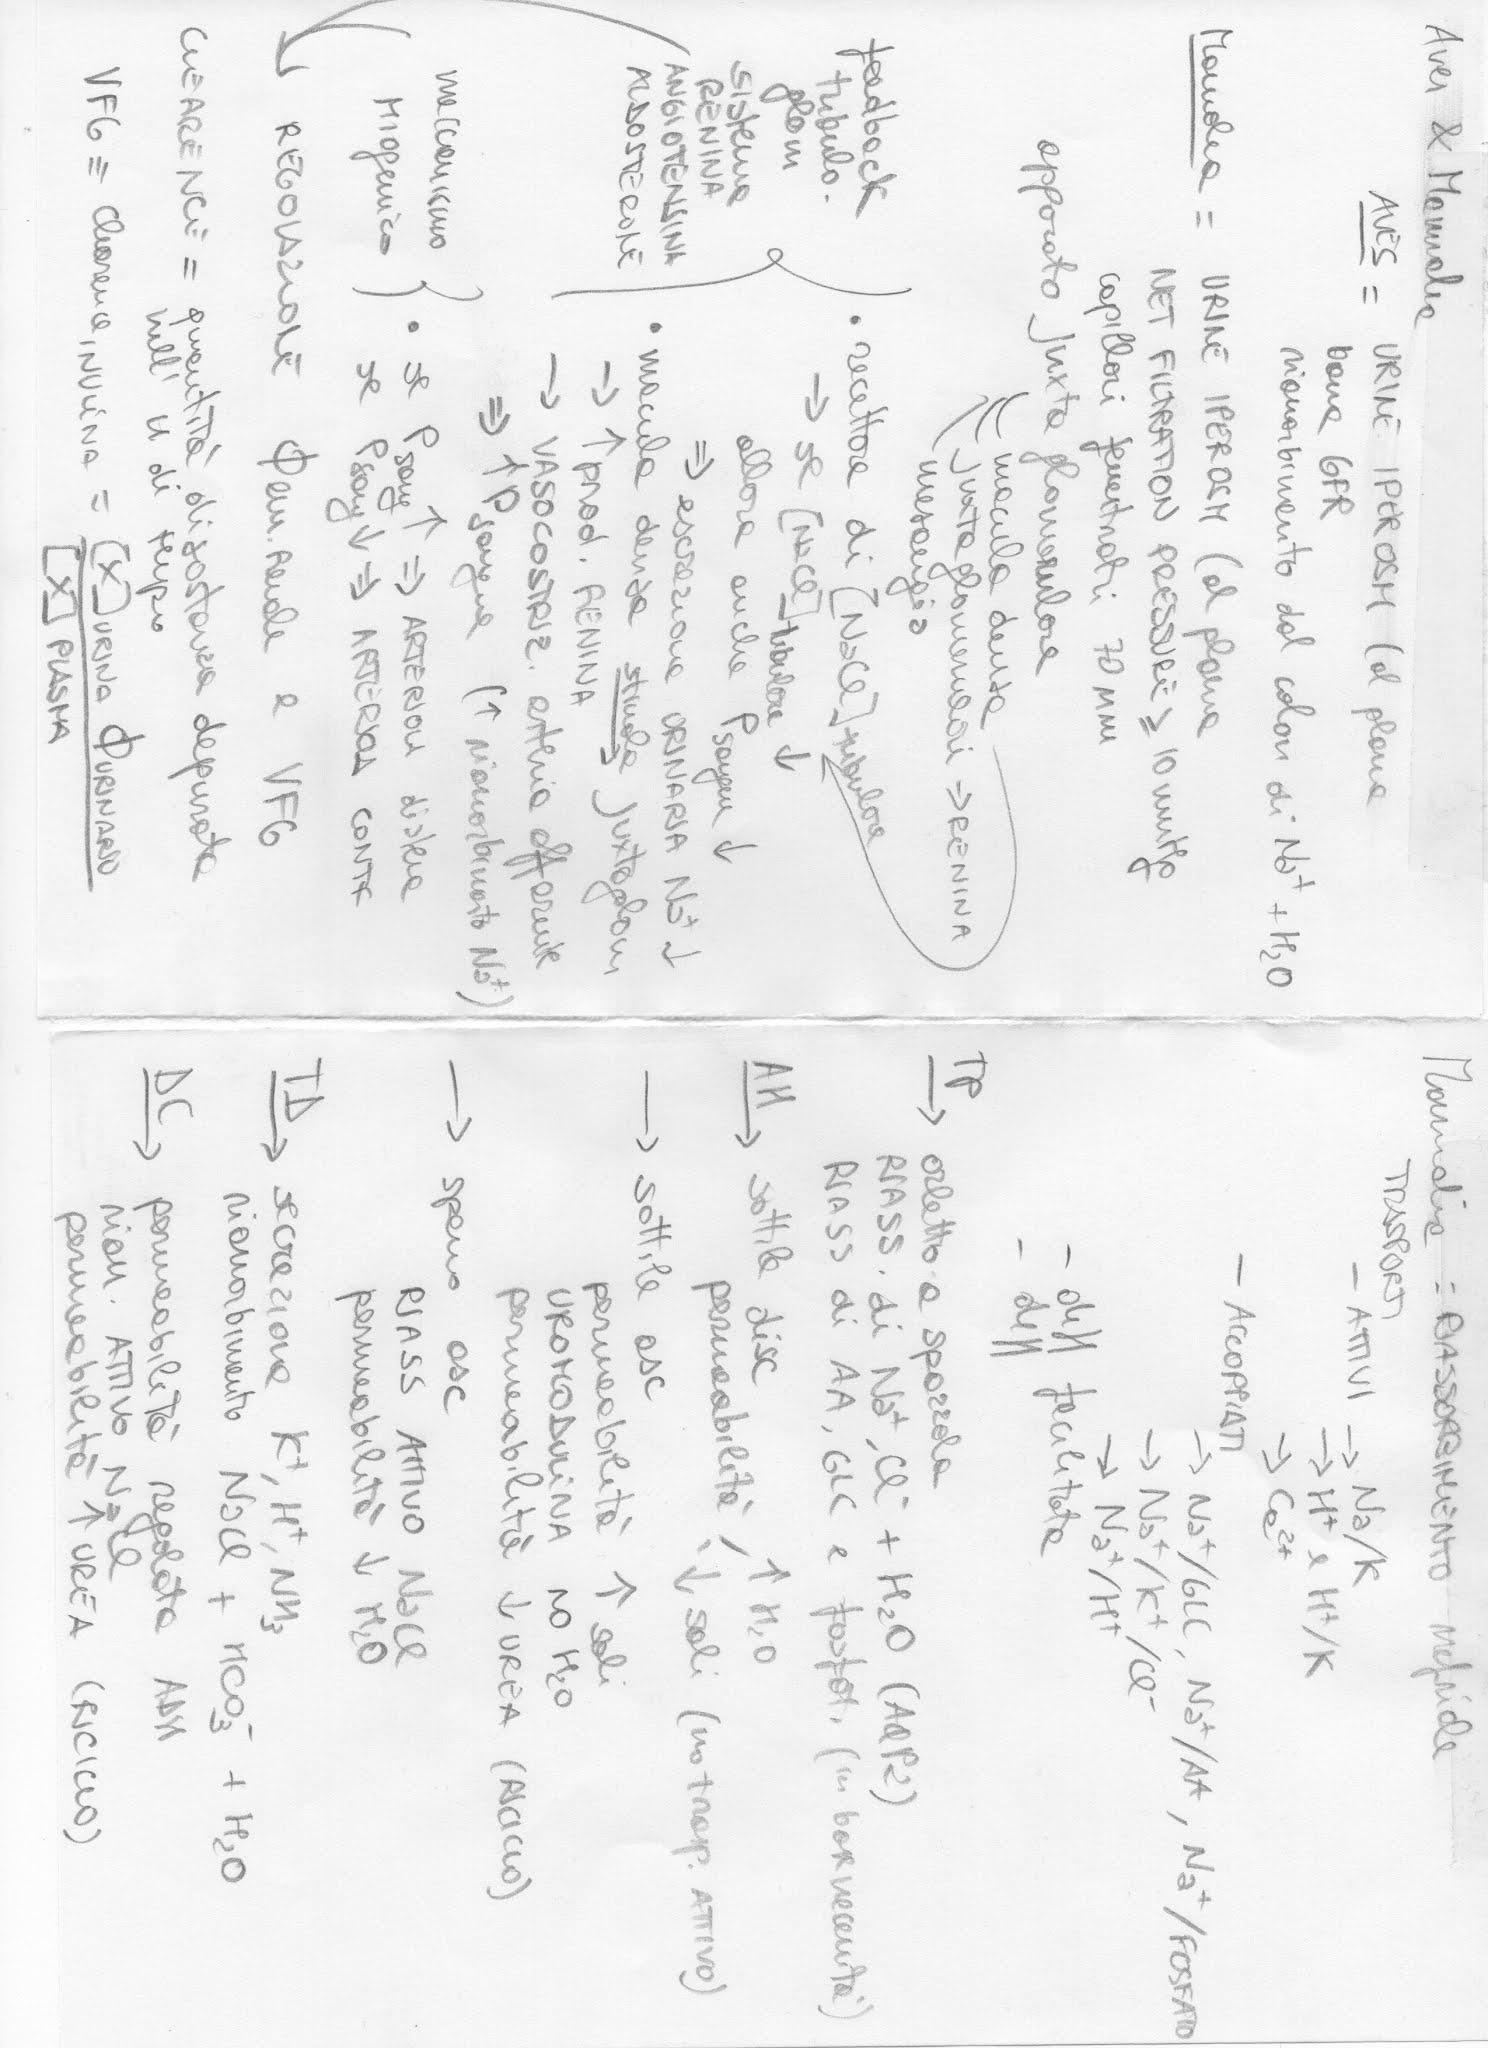 Aves & Mammalia
AVES = URINE IPEROSM (al plasma
bassa GFR
riassorbimento dal colon di Na⁺ + H₂O
Mammalia = URINE IPEROSM (al plasma
NET FILTRATION PRESSURE ≥ 10 mmHg
capillari fenestrati 70 nm
apparato juxta glomerulare
macula densa
juxtaglomerulari → RENINA
mesangio
feedback
tubulo.
glom
sistema
RENINA
ANGIOTENSINA
ALDOSTERONE
• recettore di [NaCl] tubulare
→ se [NaCl] tubulare ↓
allora anche P sangue ↓
⇒ escrezione URINARIA Na⁺ ↓
• macula densa stimola juxtaglom
→ ↑ prod. RENINA
→ VASOCOSTRIZ. arteria afferente
⇒ ↑ P sangue (↑ riassorbimento Na⁺)
meccanismo
MIOGENICO
• se P sang ↑ ⇒ ARTERIOLA distesa
se P sang ↓ ⇒ ARTERIOLA CONTR
REGOLAZIONE Φ em. Renale e VFG
CLEARENCE = quantità di sostanza depurata
nell' u di tempo
VFG ≡ clearence INULINA = [X] URINA Φ URINARIO
[X] PLASMA
Mammalia = RIASSORBIMENTO nefride
TRASPORTI
- ATTIVI → Na/K
→ H⁺ e H⁺/K
→ Ca²⁺
- ACCOPPIATI → Na⁺/GLC, Na⁺/AA, Na⁺/FOSFATO
→ Na⁺/K⁺/Cl⁻
→ Na⁺/H⁺
- diff facilitata
- diff
TP → orletto a spazzola
RIASS. di Na⁺, Cl⁻ + H₂O (AQP2)
RIASS di AA, GLC e fosfati
AH → sottile disc
permeabilità ↑ H₂O
↓ sali (no trasp. ATTIVO)
→ sottile asc
permeabilità ↑ sali
UROMODULINA NO H₂O
permeabilità ↓ UREA (RICICLO)
→ spesso asc
RIASS ATTIVO NaCl
permeabilità ↓ H₂O
TD → secrezione K⁺, H⁺, NH₃
riassorbimento NaCl + HCO₃⁻ + H₂O
DC → permeabilità regolata ADH
riass. ATTIVO NaCl
permeabilità ↑ UREA (RICICLO)